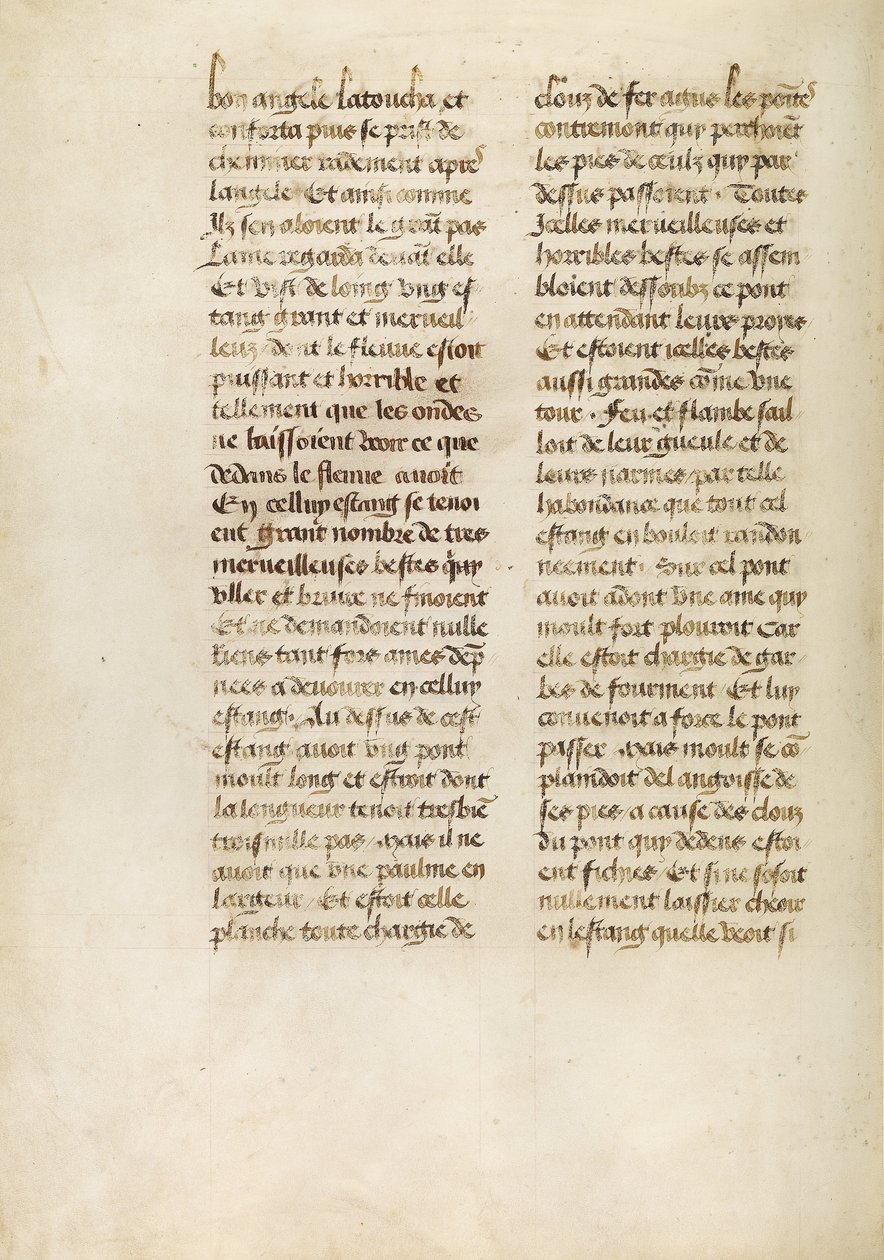 bon angele latoucha et
conforta puis se prist de
cheminer radement apres
langele Et ainsi comme
Ilz sen aloient le grāt pas
Lame regarda deuāt elle
Et vist de loing vng es-
tang grant et merueil-
leuz / dont le fleuue estoit
puissant et horrible et
tellement que les ondes
ne laissoient veoir ce que
dedans le fleuue auoit
En celluy estang se tenoi
ent grant nombre de tres
merueilleuses bestes quy
vller et bruire ne finoient
Et ne demandoient nulle
riens tant fors ames dāp
nees a deuourer en celluy
estang. Au dessus de cest
estang auoit vng pont
moult long et estroit dont
la longueur tenoit tresbiē
trois mille pas / Mais il ne
auoit que vne paulme en
largeur / Et estoit celle
planche toute chargie de
clouz de fer agus les poītes
contremont quy perchoiēt
les pies de ceulz quy par
dessus passoient. Toutes
Icelles merueilleuses et
horribles bestes se assem
bloient dessoubz ce pont
en attendant leurs proyes
Et estoient icelles bestes
aussi grandes cōme vne
tour. Feu et flambe sail
loit de leur gueule et de
leurs narines / par telle
habondance que tout cel
estang en bouloit randon-
neement. Sur cel pont
auoit adont vne ame quy
moult fort plouroit Car
elle estoit chargie de gar-
bes de fourment / Et luy
conuenoit a force le pont
passer Mais moult se cō-
plaindoit del angoisse de
ses pies / a cause des clouz
du pont quy dedens estoi-
ent fichies / Et si ne sosoit
nullement laissier cheoir
en lestang quelle veoit si